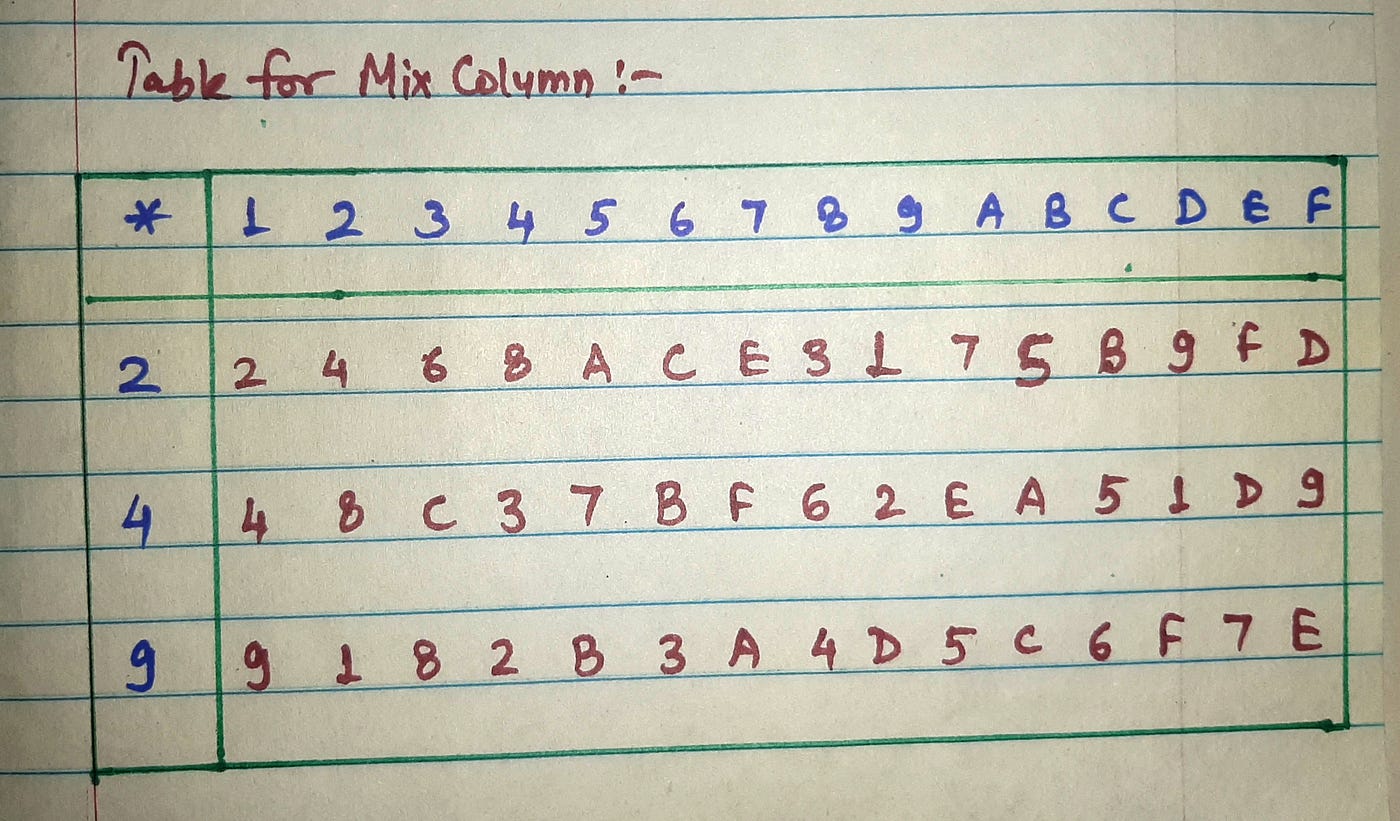 Table for Mix Column :-
* 1 2 3 4 5 6 7 8 9 A B C D E F
2 2 4 6 8 A C E 3 1 7 5 B 9 F D
4 4 8 C 3 7 B F 6 2 E A 5 1 D 9
9 9 1 8 2 B 3 A 4 D 5 C 6 F 7 E